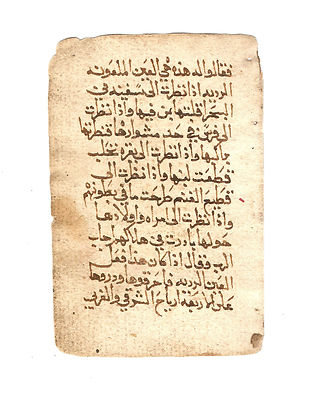 فقالوا له هذه هي العين الملعونه
الرديه اذا نظرت الى سفينه في
البحر قلبتها بمن فيها واذا نظرت
الى فرس في حد مشوارها قنطرتها
براكبها واذا نظرت الى بقره تحلب
قطعت لبنها واذا نظرت الى
قطيع الغنم طرحت ما في بطونهم
واذا نظرت الى امراه واولادها
حولها بادرت في هلاكهم حاب
الرب وقال اذا كان هذا فعل
العين الرديه فاحرقوها ودروها
على اربعة ارياح الشرقي والغربي